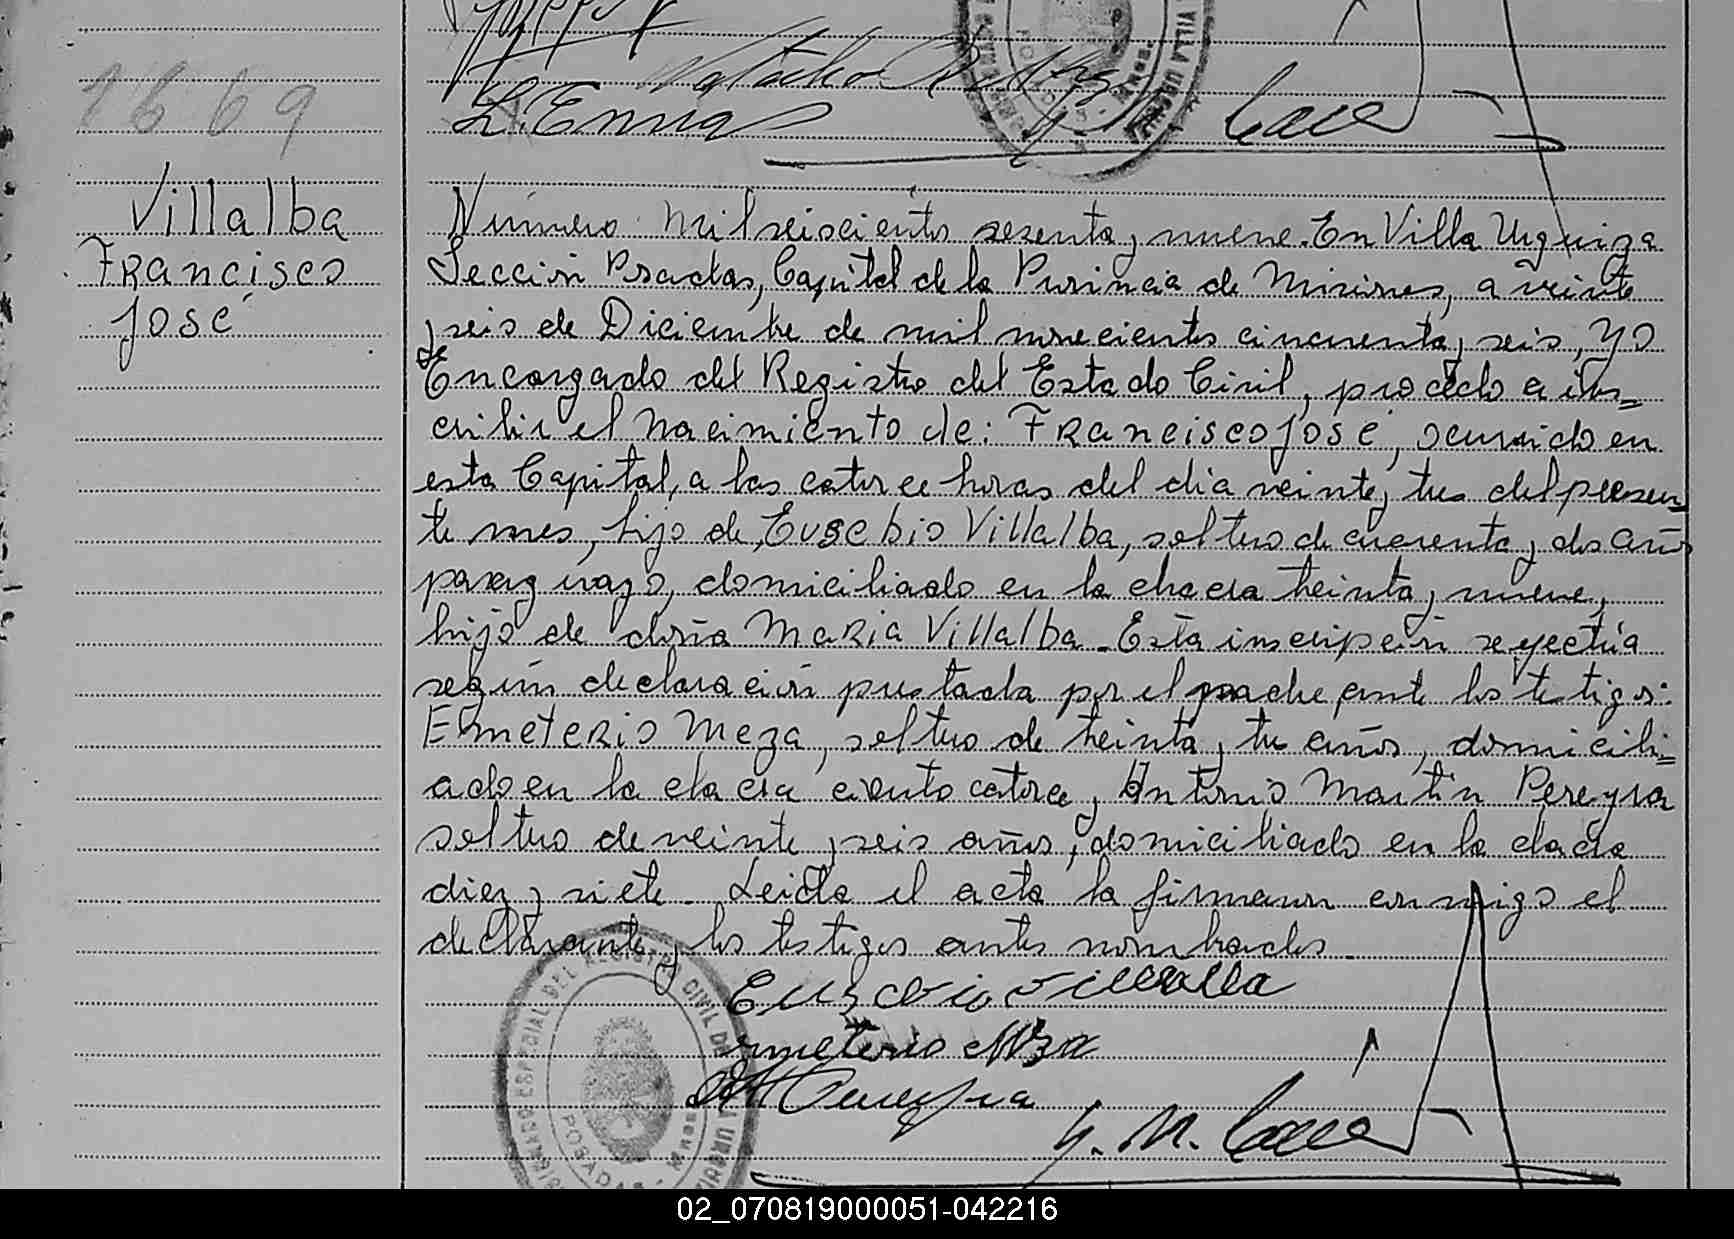 1669
L. Ennas
Villalba
Francisco
José
Número mil seiscientos sesenta y nueve. En Villa Urquiza
Sección Posadas, Capital de la Provincia de Misiones, a veinte
y seis de Diciembre de mil novecientos cincuenta y seis, yo
Encargado del Registro del Estado Civil, procedo a ins=
cribir el nacimiento de: Francisco José, ocurrido en
esta Capital, a las catorce horas del día veinte y tres del presen
te mes, hijo de Eusebio Villalba, soltero de cuarenta y dos años
paraguayo, domiciliado en la chacra treinta y nueve,
hijo de doña Maria Villalba. Esta inscripción se efectúa
según declaración prestada por el padre ante los testigos:
Emeterio Meza, soltero de treinta y tres años, domicili=
ado en la chacra ciento catorce y Antonio Martín Pereyra
soltero de veinte y seis años, domiciliado en la chacra
diez y siete. Leida el acta la firmaron conmigo el
declarante y los testigos antes nombrados.
Eusebio Villalba
Emeterio Meza
AMPereyra
REGISTRO CIVIL DE
POSADAS - Mnes.
02_070819000051-042216